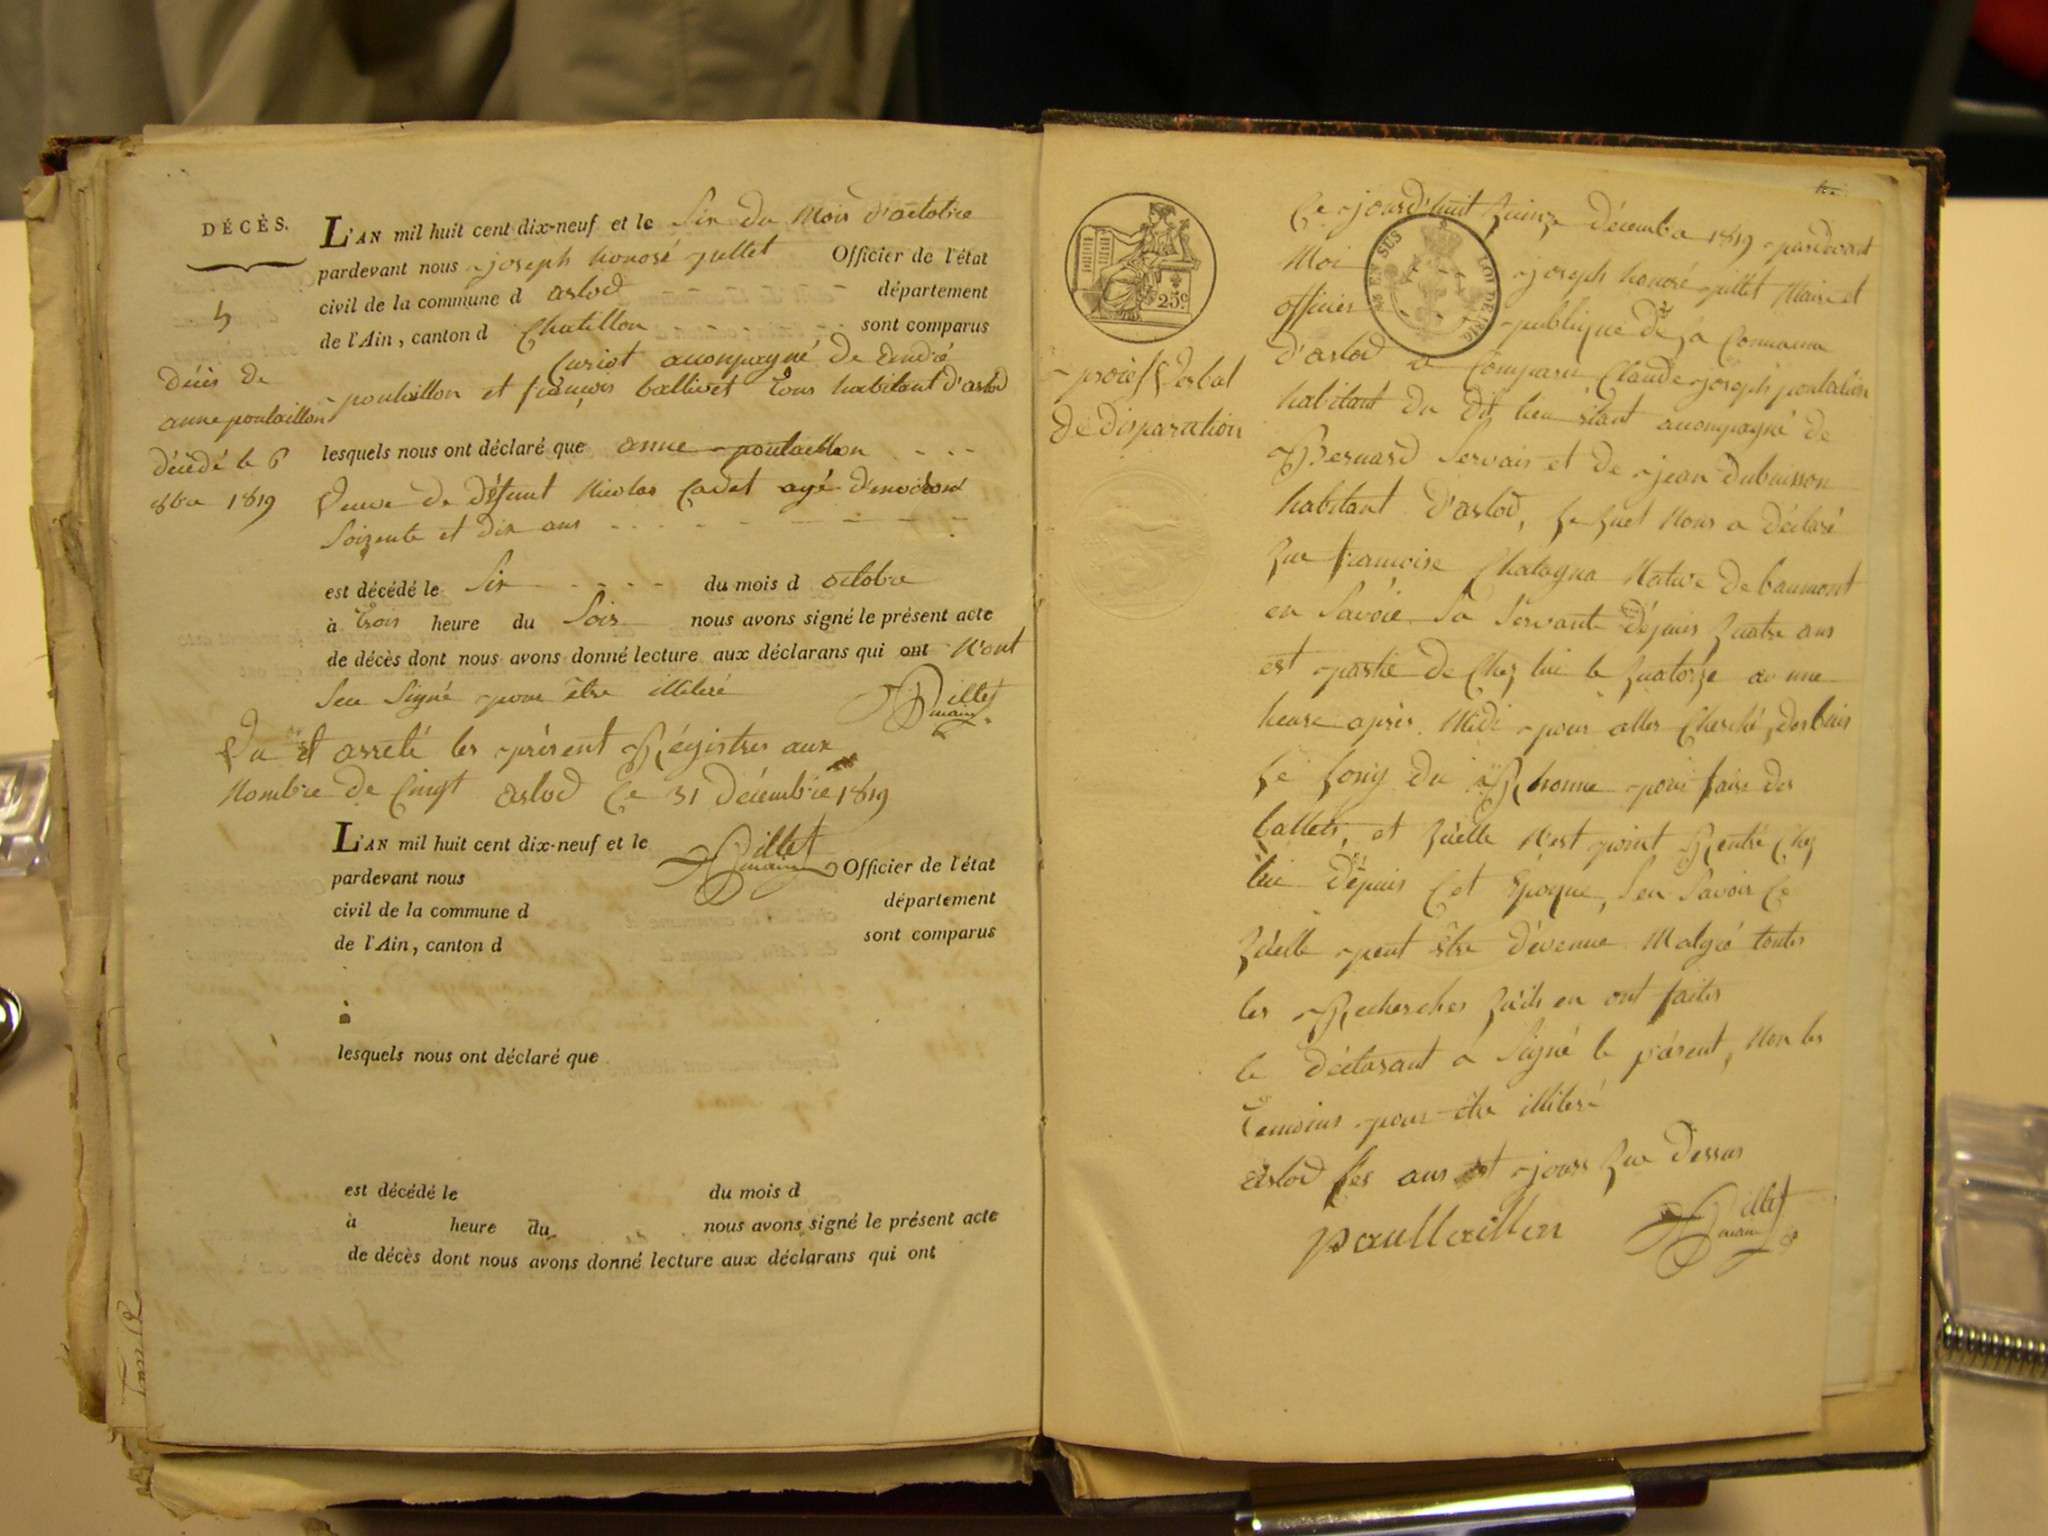 DÉCÈS.
5
Décès de
anne poutaillon
décédé le 6
8bre 1819
L'AN mil huit cent dix-neuf et le Six du Mois d'octobre
pardevant nous joseph honoré pillet Officier de l'état
civil de la commune d arlod département
de l'Ain, canton d Chatillon sont comparus
Curiot acconpagné de André
poutaillon et françois ballivet tous habitant d'arlod
lesquels nous ont déclaré que anne poutaillon
Veuve de défunt Nicolas Cadet agé d'environ
Soizente et dix ans
est décédé le Six du mois d octobre
à trois heure du Soir nous avons signé le présent acte
de décès dont nous avons donné lecture aux déclarans qui ont N'ont
Seu Signé pour être illiteré
Pillet
maire
Vu et arreté les présent Régistres aux
Nombre de Cinqt arlod Ce 31 Décembre 1819
L'AN mil huit cent dix-neuf et le
Pillet
maire
pardevant nous Officier de l'état
civil de la commune d département
de l'Ain, canton d sont comparus
à
lesquels nous ont déclaré que
est décédé le du mois d
à heure du nous avons signé le présent acte
de décès dont nous avons donné lecture aux déclarans qui ont
25c
EN SUS LOI DE 1816
procès Verbal
de disparution
Ce jourd'huit quinze décembre 1819 pardevant
Moi joseph honoré pillet Maire et
officier publique de la Commune
d'arlod a Comparu Claude joseph poutaillon
habitant du dit lieu étant acconpagné de
Bernard Servais et de jean Dubuisson
habitant d'arlod, Lequel Nous a déclaré
que françoise Chatagna Native de baumont
en Savoie Sa Servante dépuis quatre ans
est partie de Chez lui le quatorze a une
heure après Midi pour aller Cherché des buis
Le Long du Rhonne pour faire des
ballets, et qu'elle N'est point Rentré Chez
lui dépuis Cet Epoque, Sen Savoir Ce
qu'elle peut être dévenue Malgré toutes
les Recherches qu'ils en ont faites
le déclarant a Signé le présent, Non les
temoins pour être illiteré
arlod Les ans et jours que dessus
poullaillon
Pillet
maire